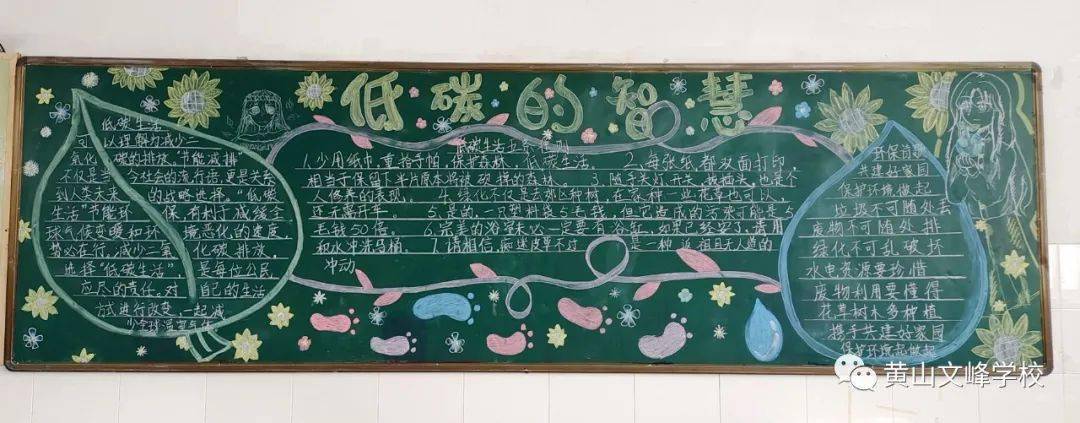 低碳的智慧
低碳生活
可以理解为减少二
氧化碳的排放，"节能减排"
不仅是当今社会的流行语，更是关系
到人类未来的战略选择。"低碳
生活"节能环保，有利于减缓全
球气候变暖和环境恶化的速度，
势必在行，减少二氧化碳排放，
选择"低碳生活"是每位公民
应尽的责任，对自己的生活
方式进行改变，一起减
少全球温室气体
低碳生活
1.少用纸巾，重拾手帕，保护森林，低碳生活。2.每张纸都双面打印，
相当于保留下半片原本将被砍掉的森林。3.随手关灯开关、拔插头，也是个
人修养的表现。4.绿化不仅是去郊外种树，在家种一些花草也可以，
还无需开车。5.是的，一只塑料袋5毛钱，但它造成的污染可能是5
毛钱50倍。6.完美的浴室未必一定要有浴缸，如果已经安了，请用
积水冲洗马桶。7.请相信，痴迷皮草不过是一种返祖且无人道的
冲动。
环保首歌
共建好家园
保护环境做起
垃圾不可随处去
废物不可随处排
绿化不可乱破坏
水电资源要珍惜
废物利用要懂得
花草树木多种植
携手共建好家园
保护环境起做起
黄山文峰学校